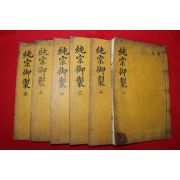 純宗御製
純宗御製 二
純宗御製 三
純宗御製 四
純宗御製
純宗御製 六